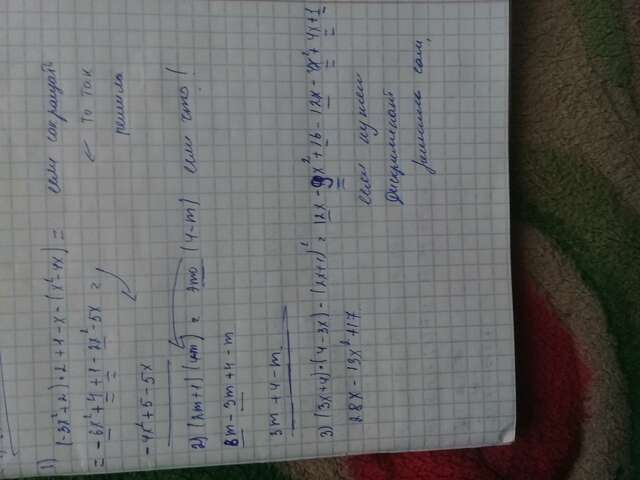 1) (-3x²+2)·2+1-x-(x²-4x) =
если сокращать
= -6x²+4+1-2x²-5x =
то так
решила
-4x²+5-5x
2) (2m+1)(4-m) = это (4-m) если что!
8m-3m+4-m
3m+4-m
3) (3x+4)·(4-3x)-(2x+1)² = 12x-9x²+16-12x-4x²+4x+1
28x-13x²+17
если нужен
дискриминант
решишь сам,